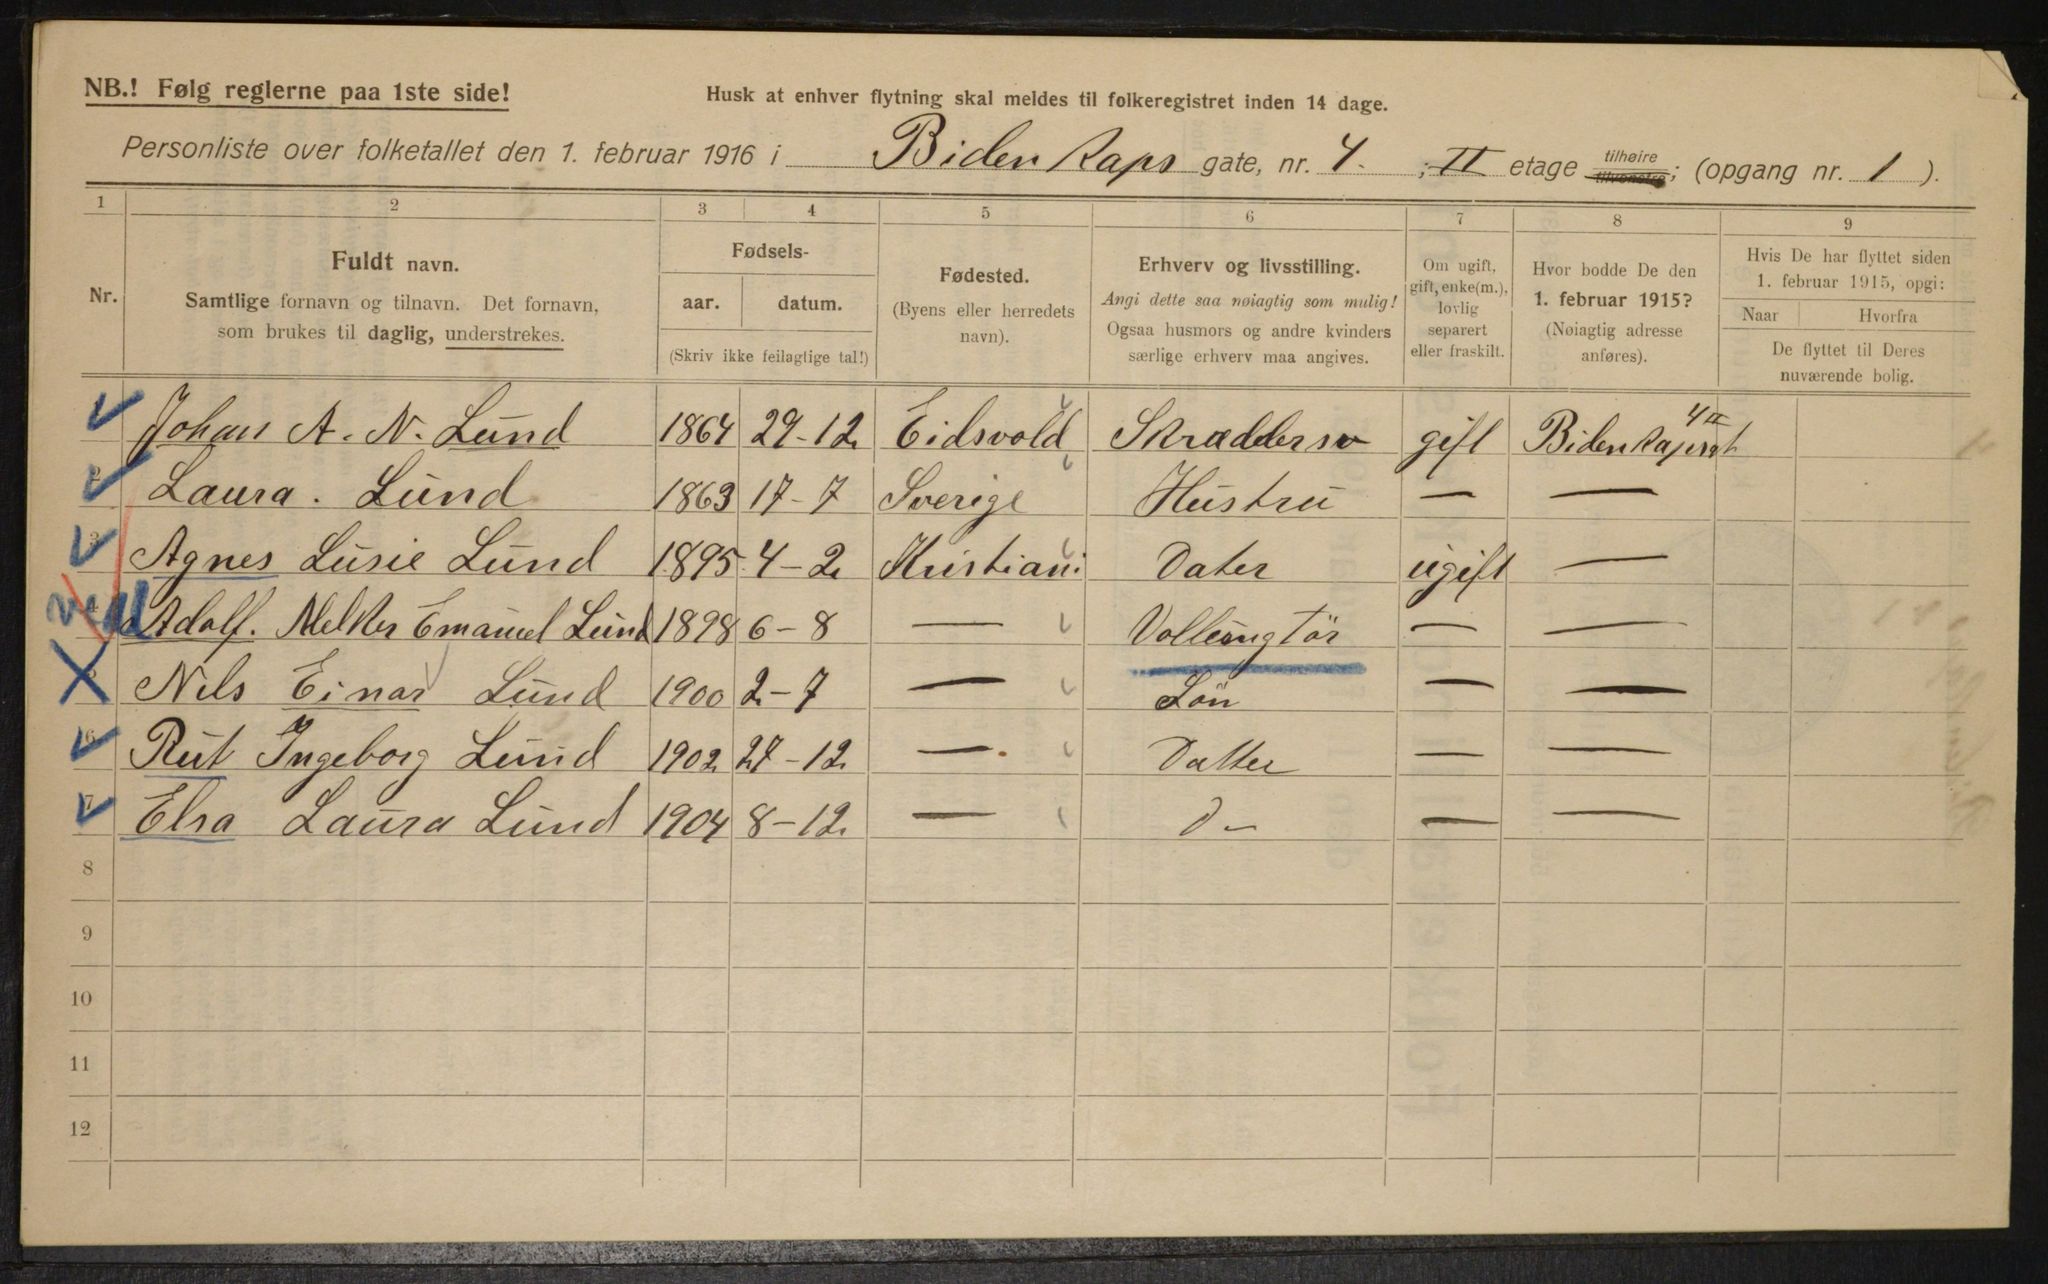 NB.! Følg reglerne paa 1ste side!
Husk at enhver flytning skal meldes til folkeregistret inden 14 dage.
Personliste over folketallet den 1. februar 1916 i Bidenkaps gate, nr. 4. ; II etage tilhøire tilvenstre; (opgang nr. 1 ).
1 2 3 4 5 6 7 8 9
Nr.
Fuldt navn.
Samtlige fornavn og tilnavn. Det fornavn,
som brukes til daglig, understrekes.
Fødsels-
aar. datum.
(Skriv ikke feilagtige tal!)
Fødested.
(Byens eller herredets
navn).
Erhverv og livsstilling.
Angi dette saa nøiagtig som mulig!
Ogsaa husmors og andre kvinders
særlige erhverv maa angives.
Om ugift,
gift, enke(m.),
lovlig
separert
eller fraskilt.
Hvor bodde De den
1. februar 1915?
(Nøiagtig adresse
anføres).
Hvis De har flyttet siden
1. februar 1915, opgi:
Naar Hvorfra
De flyttet til Deres
nuværende bolig.
Johan A. N. Lund 1864 29-12 Eidsvold gift 4 II
2 Laura. Lund 1863 17-7 Sverige Hustru — —
3 Agnes Lusie Lund 1895 4-2 Kristiani Dater ugift —
4 Adolf. Melker Emanuel Lund 1898 6-8 — — —
Nils Einar Lund 1900 2-7 — Sön — —
6 Rut Ingeborg Lund 1902 27-12 — Datter — —
7 Elsa Laura Lund 1904 8-12 — D — — —
8
9
10
11
12